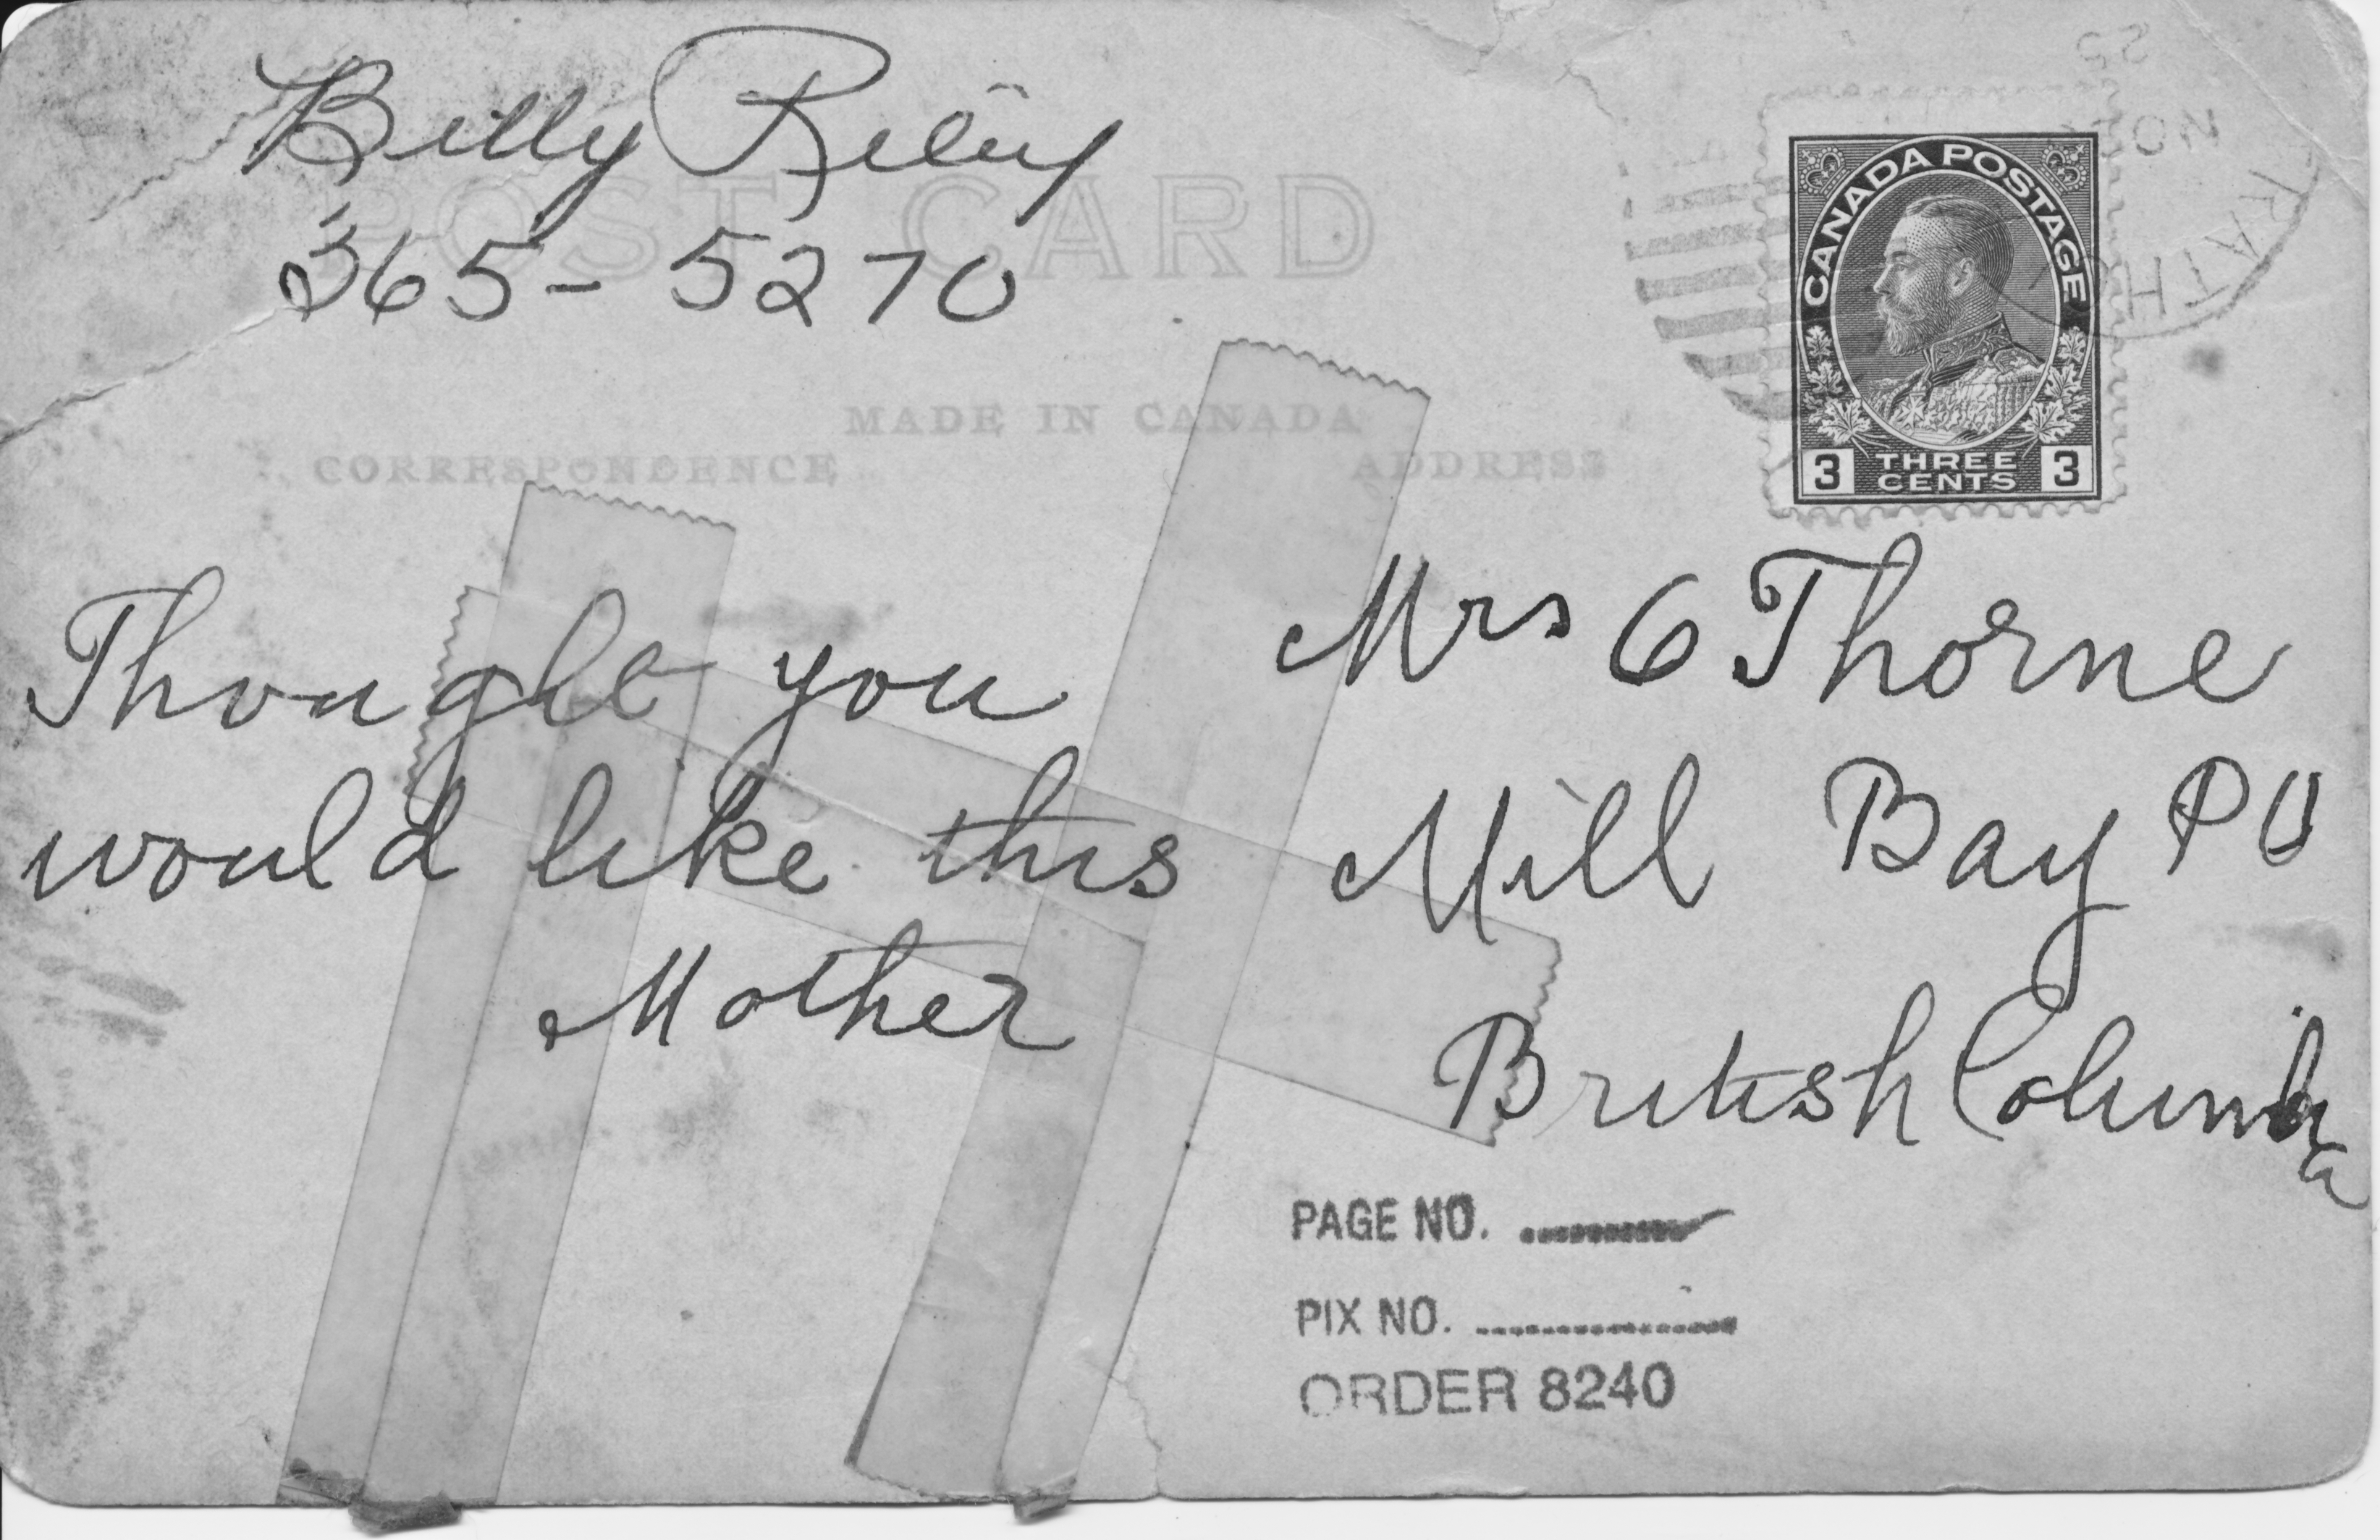 Billy Riley
365-5270
POST CARD
MADE IN CANADA
CORRESPONDENCE
ADDRESS
CANADA POSTAGE
3 THREE CENTS 3
Thought you
would like this
Mother
Mrs C Thorne
Mill Bay PO
British Columbia
PAGE NO.
PIX NO.
ORDER 8240